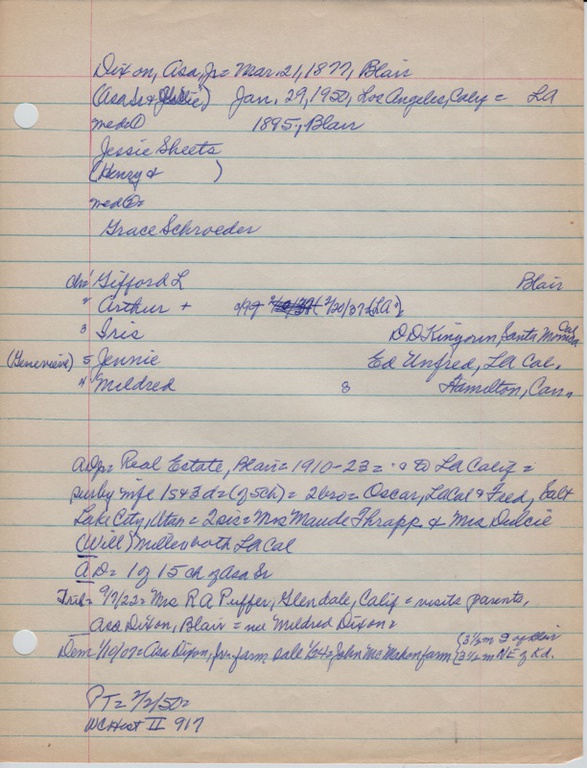 Dixon, Asa, Jr = Mar. 21, 1877, Blair
(Asa Sr & ) Jan. 29, 1950, Los Angeles, Calif = LA
med① 1895, Blair
Jessie Sheets
(Henry & )
med②=
Grace Schroeder
ch 1 Gifford L Blair
2 Arthur + (2/20/37 (LA))
3 Iris D D Kingoun, Santa Monica Cal
(Genevieve) 5 Jennie Ed Unfred, LA Cal.
4 Mildred 8 Hamilton, Can.
ADjr = Real Estate, Blair = 1910-23 = to LA Calif =
surby wife 1s & 3d = (of 5ch) = 2bro = Oscar, LA Cal & Fred, Salt
Lake City, Utah = 2sis = Mrs Maude Thrapp & Mrs Dulcie
(Will) Miller both LA Cal
AD = 1 of 15 ch of Asa Sr
Trib = 9/7/22 = Mrs R A Puffer, Glendale, Calif = visits parents,
Asa Dixon, Blair = nee Mildred Dixon =
Dem 1/10/07 = Asa Dixon, Jr. farm sale 1/24 = John McMahon farm (3 1/2 m S of Blair
(3 1/2 m NE of Kd.
PT = 2/2/50 =
WC Hist II 917